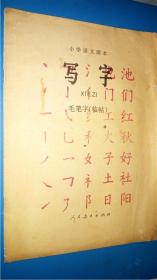 小学语文课本
写字
XIE ZI
毛笔字(临帖)
池
门 们
工 红
禾 火 秋
女 子 好
礻 土 社
阝 日 阳
人民教育出版社